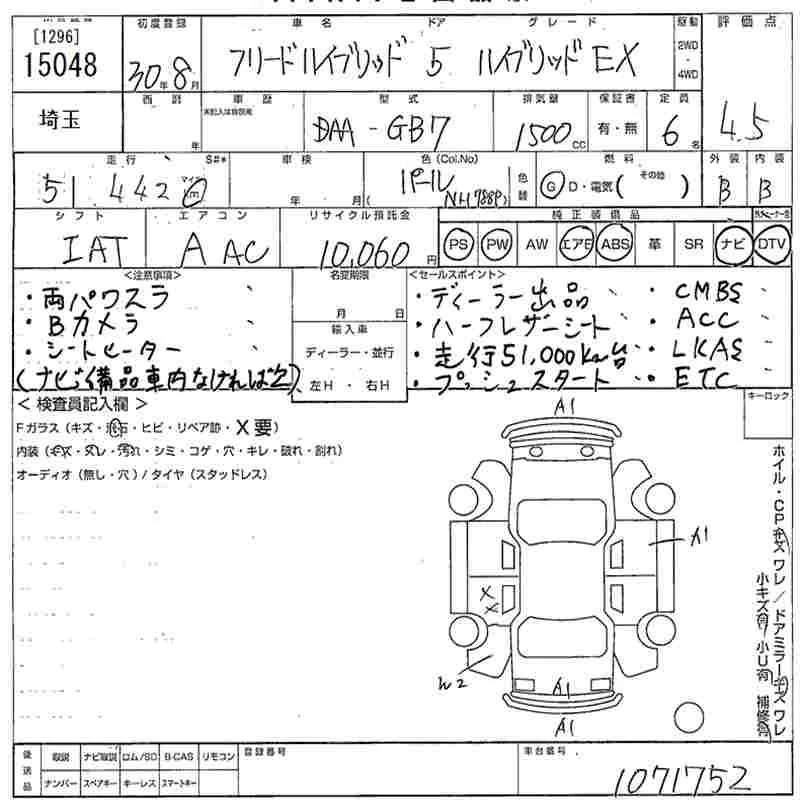 初度登録 車名 ドア グレード 駆動 評価点
[1296]
15048 30年8月 フリードハイブリッド 5 ハイブリッド EX 2WD・4WD
埼玉 車歴 型式 排気量 保証書 定員
※記入は自家用
年 DAA-GB7 1500cc 有・無 6名 4.5
走行 S#* 車検 色(Col.No) 燃料 外装 内装
51 442 マイル km 年 月 パール NH(788P) 色替 G D・電気( その他 ) B B
シフト エアコン リサイクル預託金 純正装備品
IAT A AC 10,060円 PS PW AW エアB ABS 革 SR ナビ DTV
<注意事項> 名変期限 <セールスポイント>
・両パワスラ 月 日 ・ディーラー出品 ・CMBS
・Bカメラ 輸入車 ・ハーフレザーシート ・ACC
・シートヒーター ディーラー・並行 ・走行51,000km台 ・LKAS
(ナビ備品車内なければ乙) 左H・右H ・プッシュスタート ・ETC
<検査員記入欄> キーロック
Fガラス(キズ・飛石・ヒビ・リペア跡・X要)
内装(キズ・ヌレ・汚れ・シミ・コゲ・穴・キレ・破れ・割れ)
オーディオ(無し・穴)/タイヤ(スタッドレス)
A1
A1
X
X
A1
A1
ホイル・CPキズ ワレ/ドアミラーキズ ワレ
小キズ有 小U有 補修有
後送品 取説 ナビ取説 ロム/SD B-CAS リモコン 登録番号 車台番号
ナンバー スペアキー キーレス スマートキー 1071752